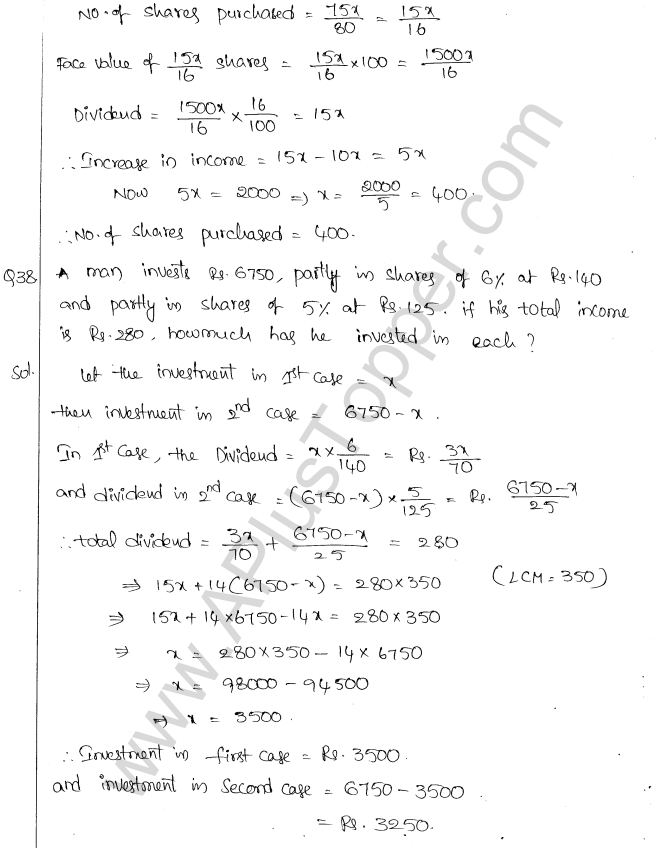 No. of shares purchased = 75x/80 = 15x/16
Face value of 15x/16 shares = 15x/16 × 100 = 1500x/16
Dividend = 1500x/16 × 16/100 = 15x
∴ Increase in income = 15x - 10x = 5x
Now 5x = 2000 => x = 2000/5 = 400.
∴ No. of shares purchased = 400.
Q38 A man invests Rs. 6750, partly in shares of 6% at Rs. 140
and partly in shares of 5% at Rs. 125. if his total income
is Rs. 280, howmuch has he invested in each?
Sol. Let the investment in 1st case = x
then investment in 2nd case = 6750 - x.
In 1st case, the Dividend = x × 6/140 = Rs. 3x/70
and dividend in 2nd case = (6750 - x) × 5/125 = Rs. 6750 - x/25
∴ total dividend = 3x/70 + 6750 - x/25 = 280
=> 15x + 14(6750 - x) = 280 × 350 (LCM = 350)
=> 15x + 14 × 6750 - 14x = 280 × 350
=> x = 280 × 350 - 14 × 6750
=> x = 98000 - 94500
=> x = 3500.
∴ Investment in first case = Rs. 3500.
and investment in Second case = 6750 - 3500
= Rs. 3250.
www.APlusTopper.com